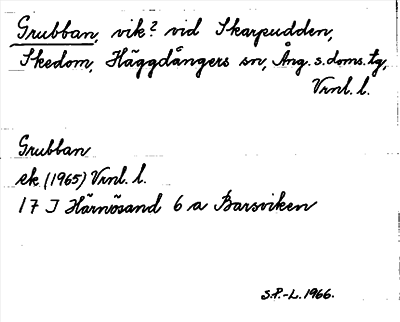 Grubban, vik? vid Skarpudden,
Skedom, Häggdångers sn, Ång. s. doms. tg,
Vrnl. l.
Grubban
ek (1965) Vrnl. l.
17 J Härnösand 6 a Barsviken
S.P.-L. 1966.